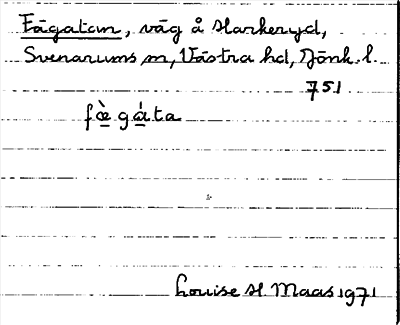 Fägatan, väg å Harkeryd,
Svenarums sn, Västra hd, Jönk. l.
751
fǜgáta
Louise H Maas 1971